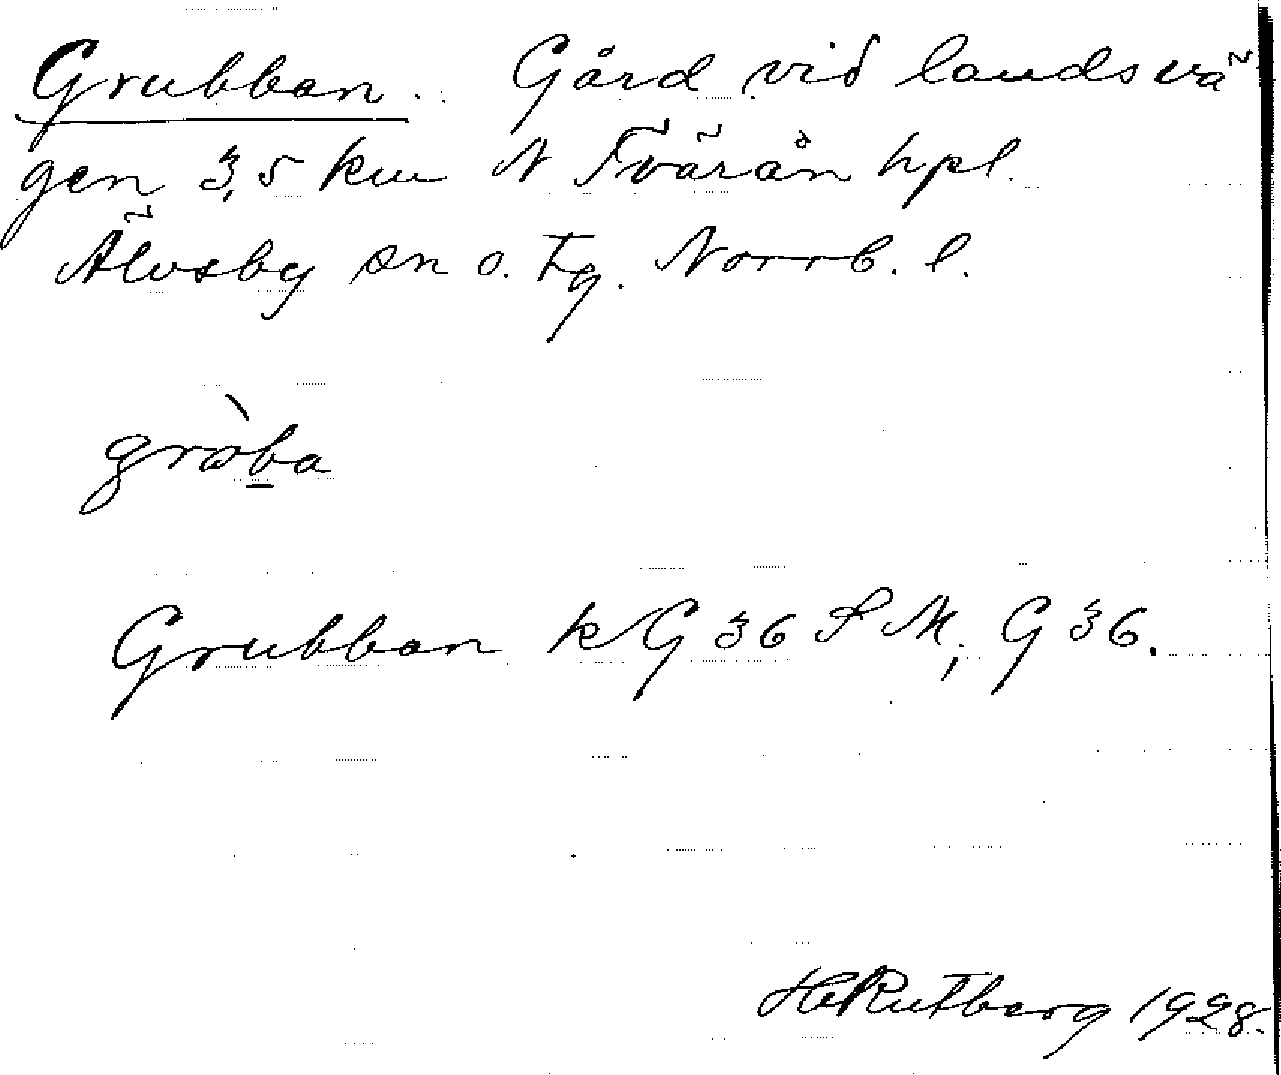 Grubban. Gård vid landsvä
gen 3,5 km N Tvärån hpl.
Älvsby sn o. tg. Norrb. l.
gròba
Grubban kG 36 S M, G 36.
H Rutberg 1928.